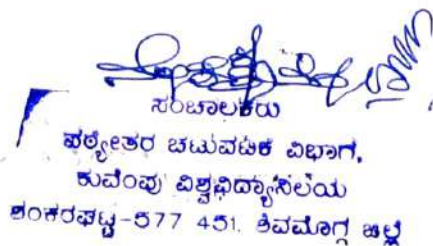 ಸಂಚಾಲಕರು
ಪಠ್ಯೇತರ ಚಟುವಟಿಕೆ ವಿಭಾಗ,
ಕುವೆಂಪು ವಿಶ್ವವಿದ್ಯಾನಿಲಯ
ಶಂಕರಘಟ್ಟ-577 451. ಶಿವಮೊಗ್ಗ ಜಿಲ್ಲೆ